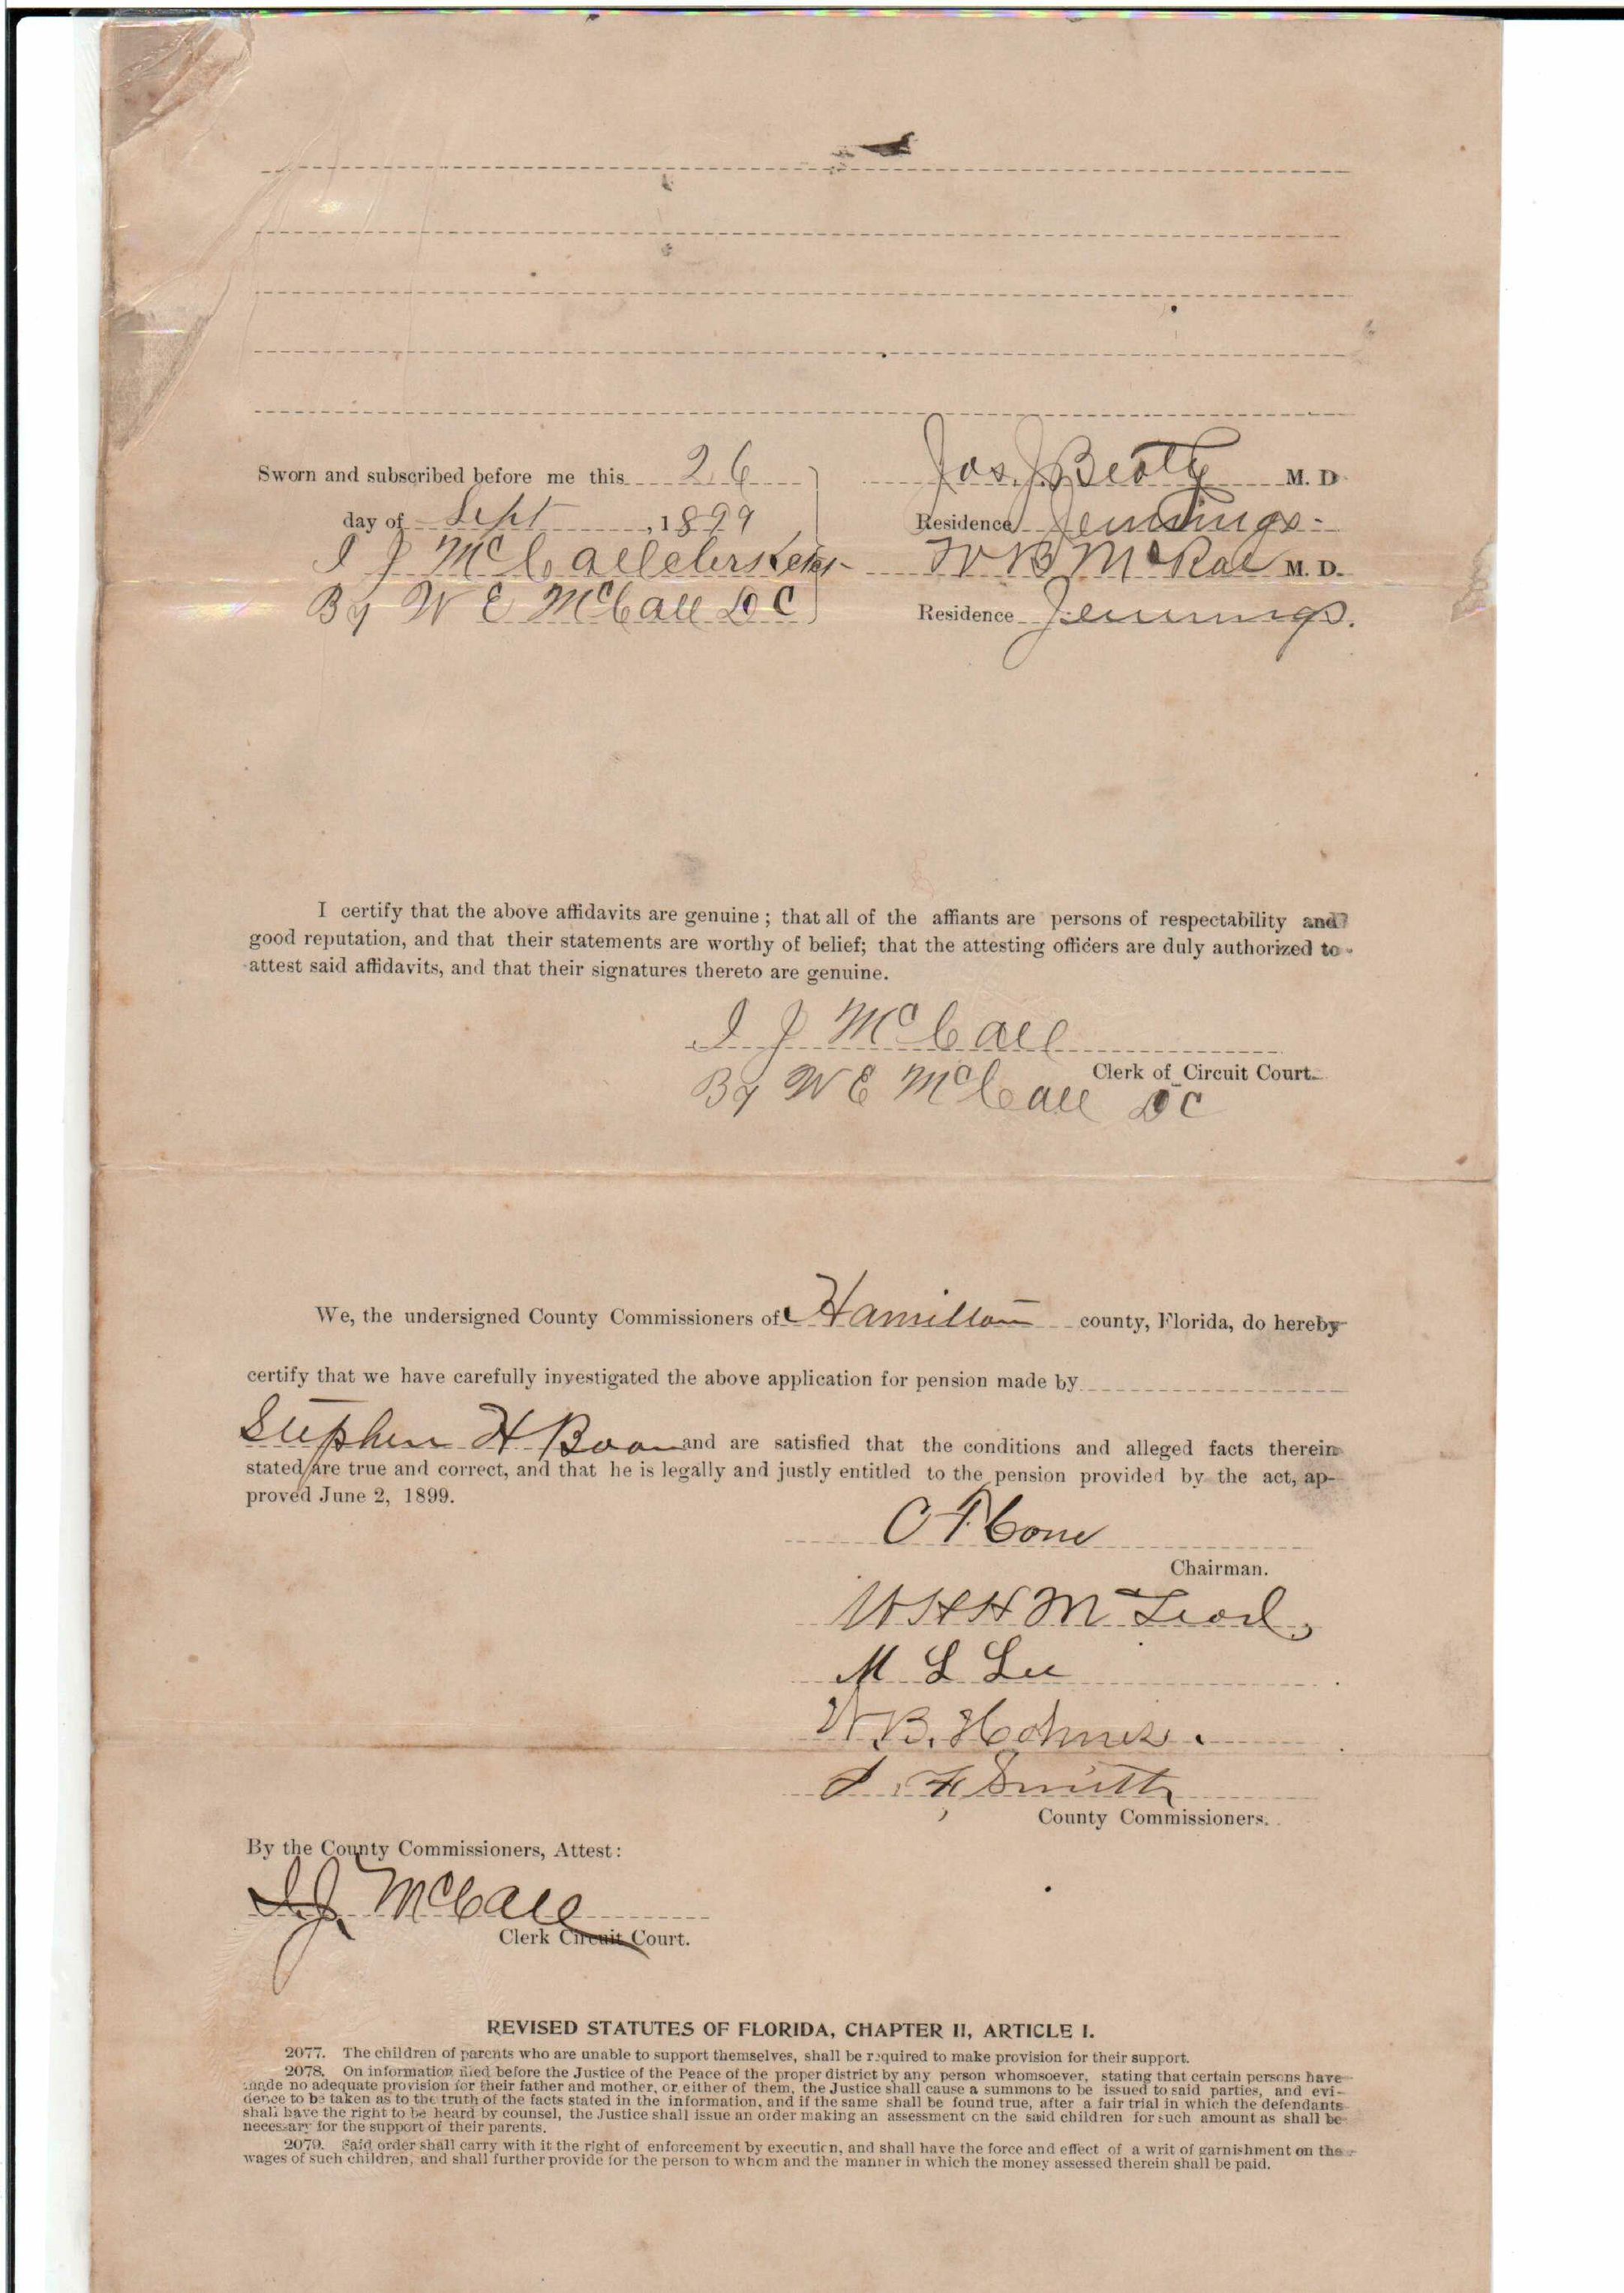 Sworn and subscribed before me this 26
day of Sept, 1899
I J McCall clerk
By W E McCall D C
Jos. J Beatty M. D.
Residence Jennings.
W B McRae M. D.
Residence Jennings.
I certify that the above affidavits are genuine; that all of the affiants are persons of respectability and
good reputation, and that their statements are worthy of belief; that the attesting officers are duly authorized to
attest said affidavits, and that their signatures thereto are genuine.
I J McCall
Clerk of Circuit Court.
By W E McCall D C
We, the undersigned County Commissioners of Hamilton county, Florida, do hereby
certify that we have carefully investigated the above application for pension made by
Stephen H Boon and are satisfied that the conditions and alleged facts therein
stated are true and correct, and that he is legally and justly entitled to the pension provided by the act, ap-
proved June 2, 1899.
C F Cone
Chairman.
W H H McLeod,
M L Lee
W. B. Holmes.
F Smith
County Commissioners.
By the County Commissioners, Attest:
I. J. McCall
Clerk Circuit Court.
REVISED STATUTES OF FLORIDA, CHAPTER II, ARTICLE I.
2077. The children of parents who are unable to support themselves, shall be required to make provision for their support.
2078. On information filed before the Justice of the Peace of the proper district by any person whomsoever, stating that certain persons have
made no adequate provision for their father and mother, or either of them, the Justice shall cause a summons to be issued to said parties, and evi-
dence to be taken as to the truth of the facts stated in the information, and if the same shall be found true, after a fair trial in which the defendants
shall have the right to be heard by counsel, the Justice shall issue an order making an assessment on the said children for such amount as shall be
necessary for the support of their parents.
2079. Said order shall carry with it the right of enforcement by execution, and shall have the force and effect of a writ of garnishment on the
wages of such children, and shall further provide for the person to whom and the manner in which the money assessed therein shall be paid.